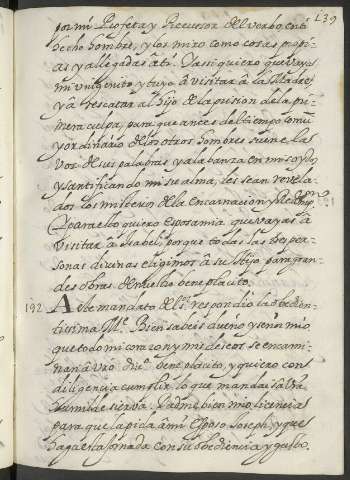 139
por mi Profeta, y Precursor del verbo en ti
hecho hombre, y los miro como cosas propi-
as y allegadas â ti. Y assi quiero que vaya
mi unigenito y tuyo â visitar â la Madre,
y â rescatar al hijo de la prision de la pri-
mera culpa, para que antes del tiempo comu
y ordinario de los otros hombres suene la
voz de sus palabras y alabanza en mis oydos
y santificando mi su alma, les sean revela-
dos los misterios de la encarnacion y Redempn.
Y para ello quiero Esposa mia que vayas â
visitar â Isabel; porque todas las tres per-
sonas divinas eligimos â su Hijo para gran-
des obras de nuestro beneplacito.
192 A este mandato del Sr. respondio la obedien-
tissima Me. Bien sabeis dueño y señor mio
que todo mi corazon y mis deseos se encami-
nan â vro divo. beneplacito, y quiero con
diligencia cumplir lo que mandais â vra
humilde sierva. Dadme bien mio licencia
para que la pida â mi Esposo Joseph, y que
haga esta jornada con su obediencia y gusto